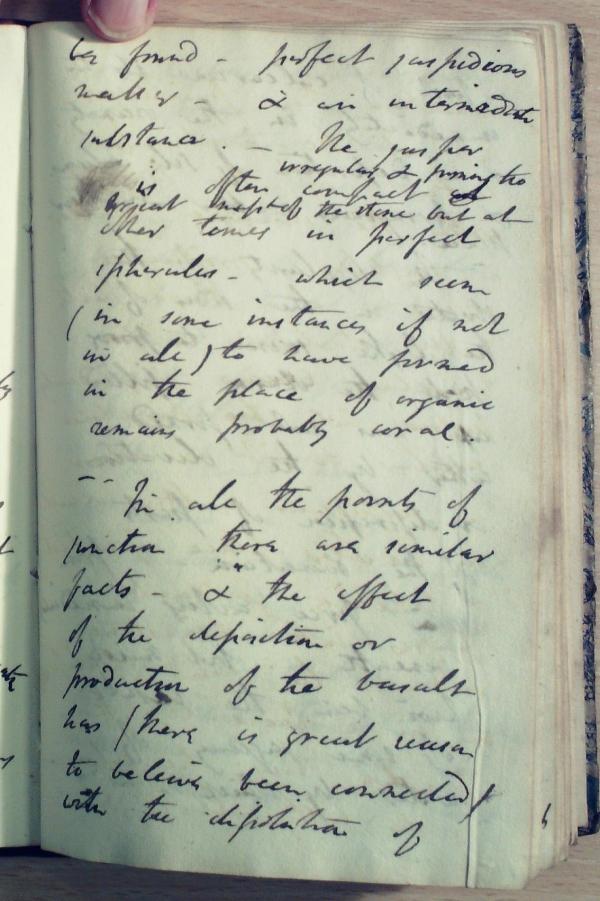 be found - perfect jaspidious
matter - & an intermediate
substance. - The jasper
irregular & forming the
is often compact
great mass of the stone but at
other times in perfect
spherules - which seem
(in some instances if not
in all) to have formed
in the place of organic
remains probably coral.
-- In all the points of
junction there are similar
facts - & the effect
of the deposition or
production of the basalt
has (there is great reason
to believe been connected)
with the of